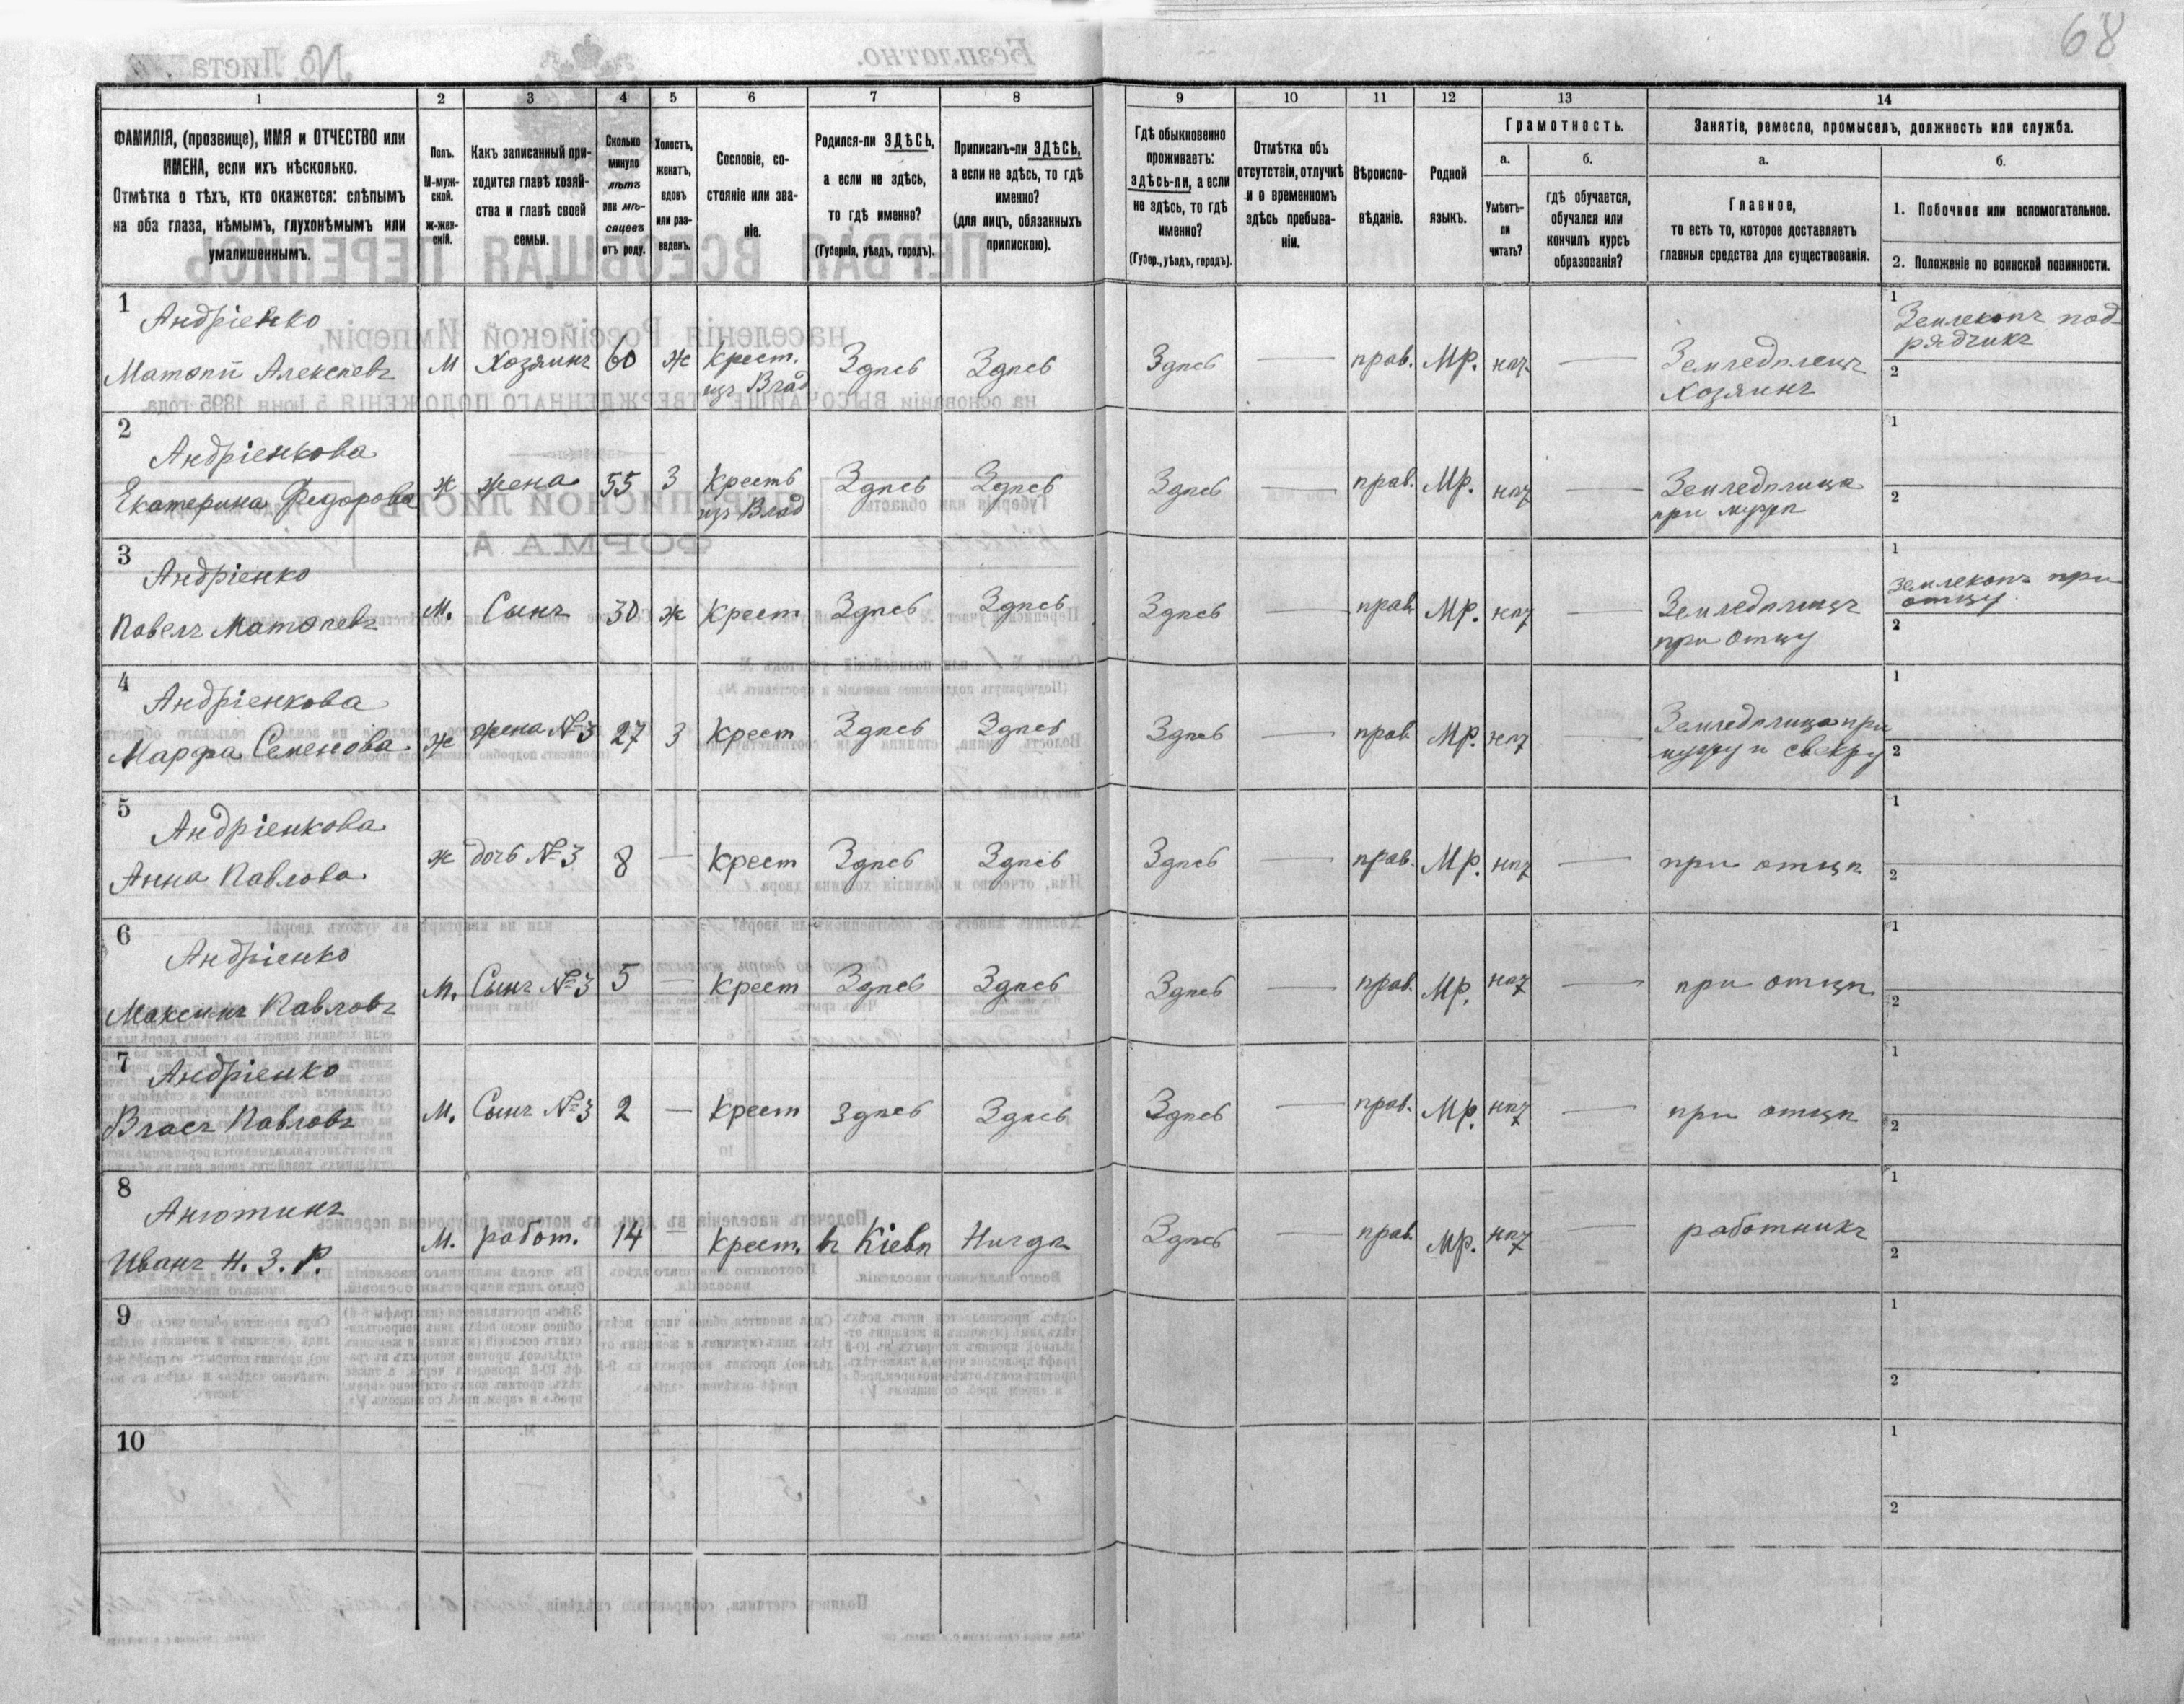 68
1 2 3 4 5 6 7 8 9 10 11 12 13 14
ФАМИЛІЯ, (прозвище), ИМЯ и ОТЧЕСТВО или
ИМЕНА, если ихъ нѣсколько.
Отмѣтка о тѣхъ, кто окажется: слѣпымъ
на оба глаза, нѣмымъ, глухонѣмымъ или
умалишеннымъ.
Полъ.
М-муж-
ской.
ж-жен-
скій.
Какъ записанный при-
ходится главѣ хозяй-
ства и главѣ своей
семьи.
Сколько
минуло
лѣтъ
или мѣ-
сяцевъ
отъ роду.
Холостъ,
женатъ,
вдовъ
или раз-
веденъ.
Сословіе, со-
стояніе или зва-
ніе.
Родился-ли ЗДѢСЬ,
а если не здѣсь,
то гдѣ именно?
(Губернія, уѣздъ, городъ).
Приписанъ-ли ЗДѢСЬ,
а если не здѣсь, то гдѣ
именно?
(для лицъ, обязанныхъ
припискою).
Гдѣ обыкновенно
проживаетъ:
здѣсь-ли, а если
не здѣсь, то гдѣ
именно?
(Губер., уѣздъ, городъ).
Отмѣтка объ
отсутствіи, отлучкѣ
и о временномъ
здѣсь пребыва-
ніи.
Вѣроиспо-
вѣданіе.
Родной
языкъ.
Грамотность.
а.
Умѣетъ-
ли
читать?
б.
гдѣ обучается,
обучался или
кончилъ курсъ
образованія?
Занятіе, ремесло, промыселъ, должность или служба.
а.
Главное,
то есть то, которое доставляетъ
главныя средства для существованія.
б.
1. Побочное или вспомогательное.
2. Положеніе по воинской повинности.
1
Андріенко
Матѳѣй Алексѣевъ М Хозяинъ 60 ж Крест. Здѣсь Здѣсь Здѣсь — прав. Мр. нѣт — Земледѣлецъ
изъ Влад
хозяинъ
1 Землекопъ под-
рядчикъ
2
2
Андріенкова
Екатерина Федорова ж жена 55 З Кресть Здѣсь Здѣсь Здѣсь — прав. Мр. нѣт — Земледѣлица
изъ Влад
при мужѣ
1
2
3
Андріенко
Павелъ Матѳѣевъ М. Сынъ 30 ж Крест. Здѣсь Здѣсь Здѣсь — прав Мр. нѣт — Земледѣлецъ
при отцу
1 Землекопъ при
отцу.
2
4
Андріенкова
Марфа Семенова ж жена №3 27 З Крест Здѣсь Здѣсь Здѣсь — прав Мр. нѣт — Земледѣлица при
мужу и свекру
1
2
5
Андріенкова
Анна Павлова ж дочь №3 8 — Крест Здѣсь Здѣсь Здѣсь — прав. Мр. нѣт — при отцѣ
1
2
6
Андріенко
Максимъ Павловъ М. Сынъ №3 5 — Крест Здѣсь Здѣсь Здѣсь — прав. Мр. нѣт — при отцѣ
1
2
7
Андріенко
Власъ Павловъ М. Сынъ №3 2 — Крест Здѣсь Здѣсь Здѣсь — прав. Мр. нѣт — при отцѣ
1
2
8
Анютинъ
Иванъ Н. З. Р. М. работ. 14 — Крест. въ Кіевѣ Нигдѣ Здѣсь — прав. Мр. нѣт — работникъ
1
2
9
1
2
10
1
2